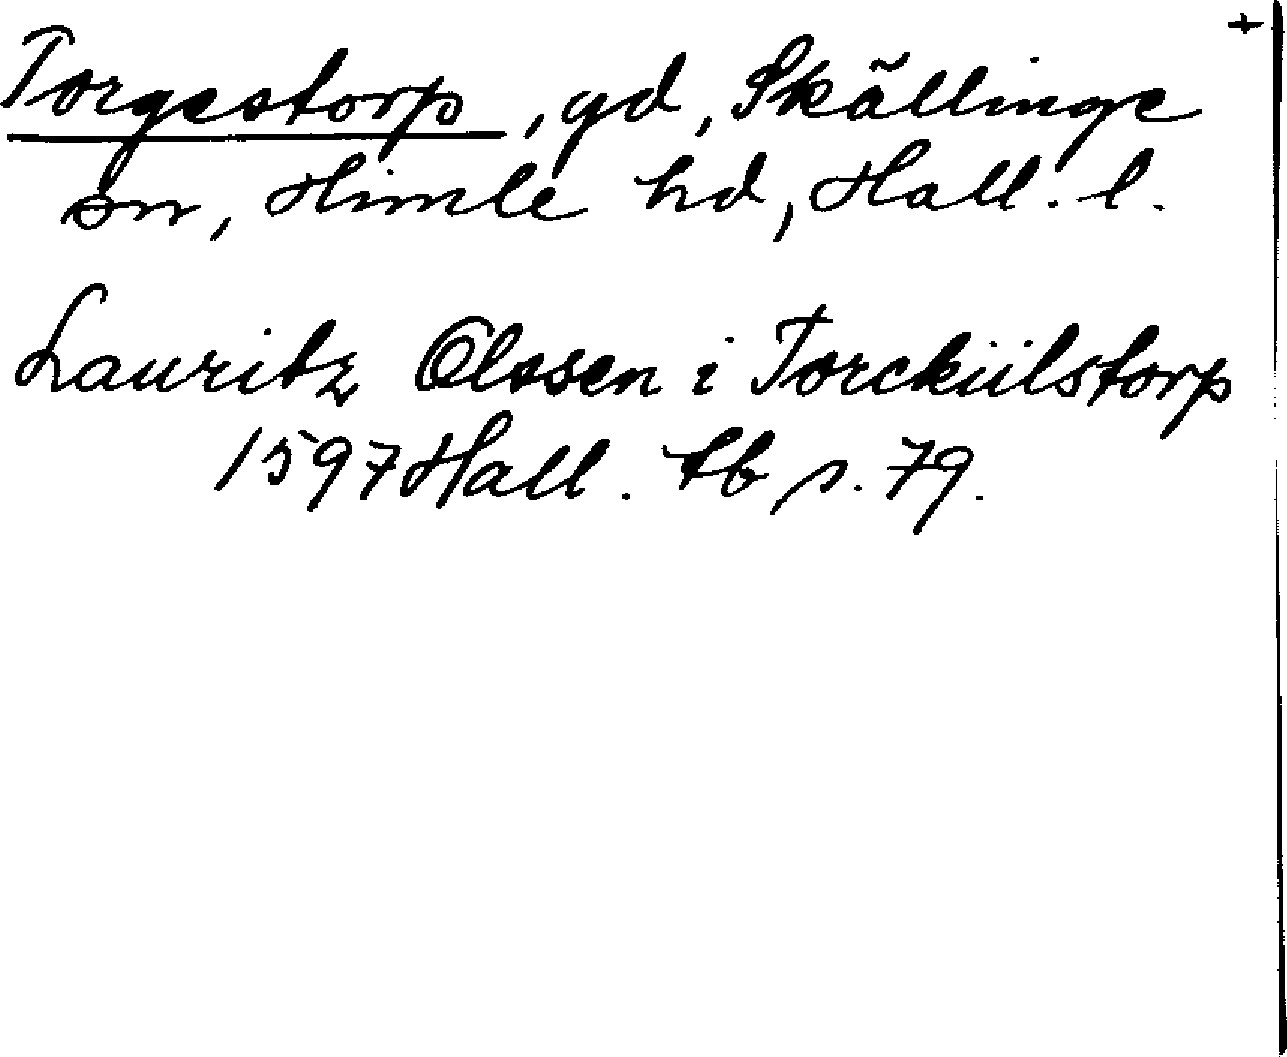 +
Torgestorp, gd, Skällinge
sn, Himle hd, Hall. l.
Lauritz Olssen i Torckülstorp
1597 Hall. tb s. 79.